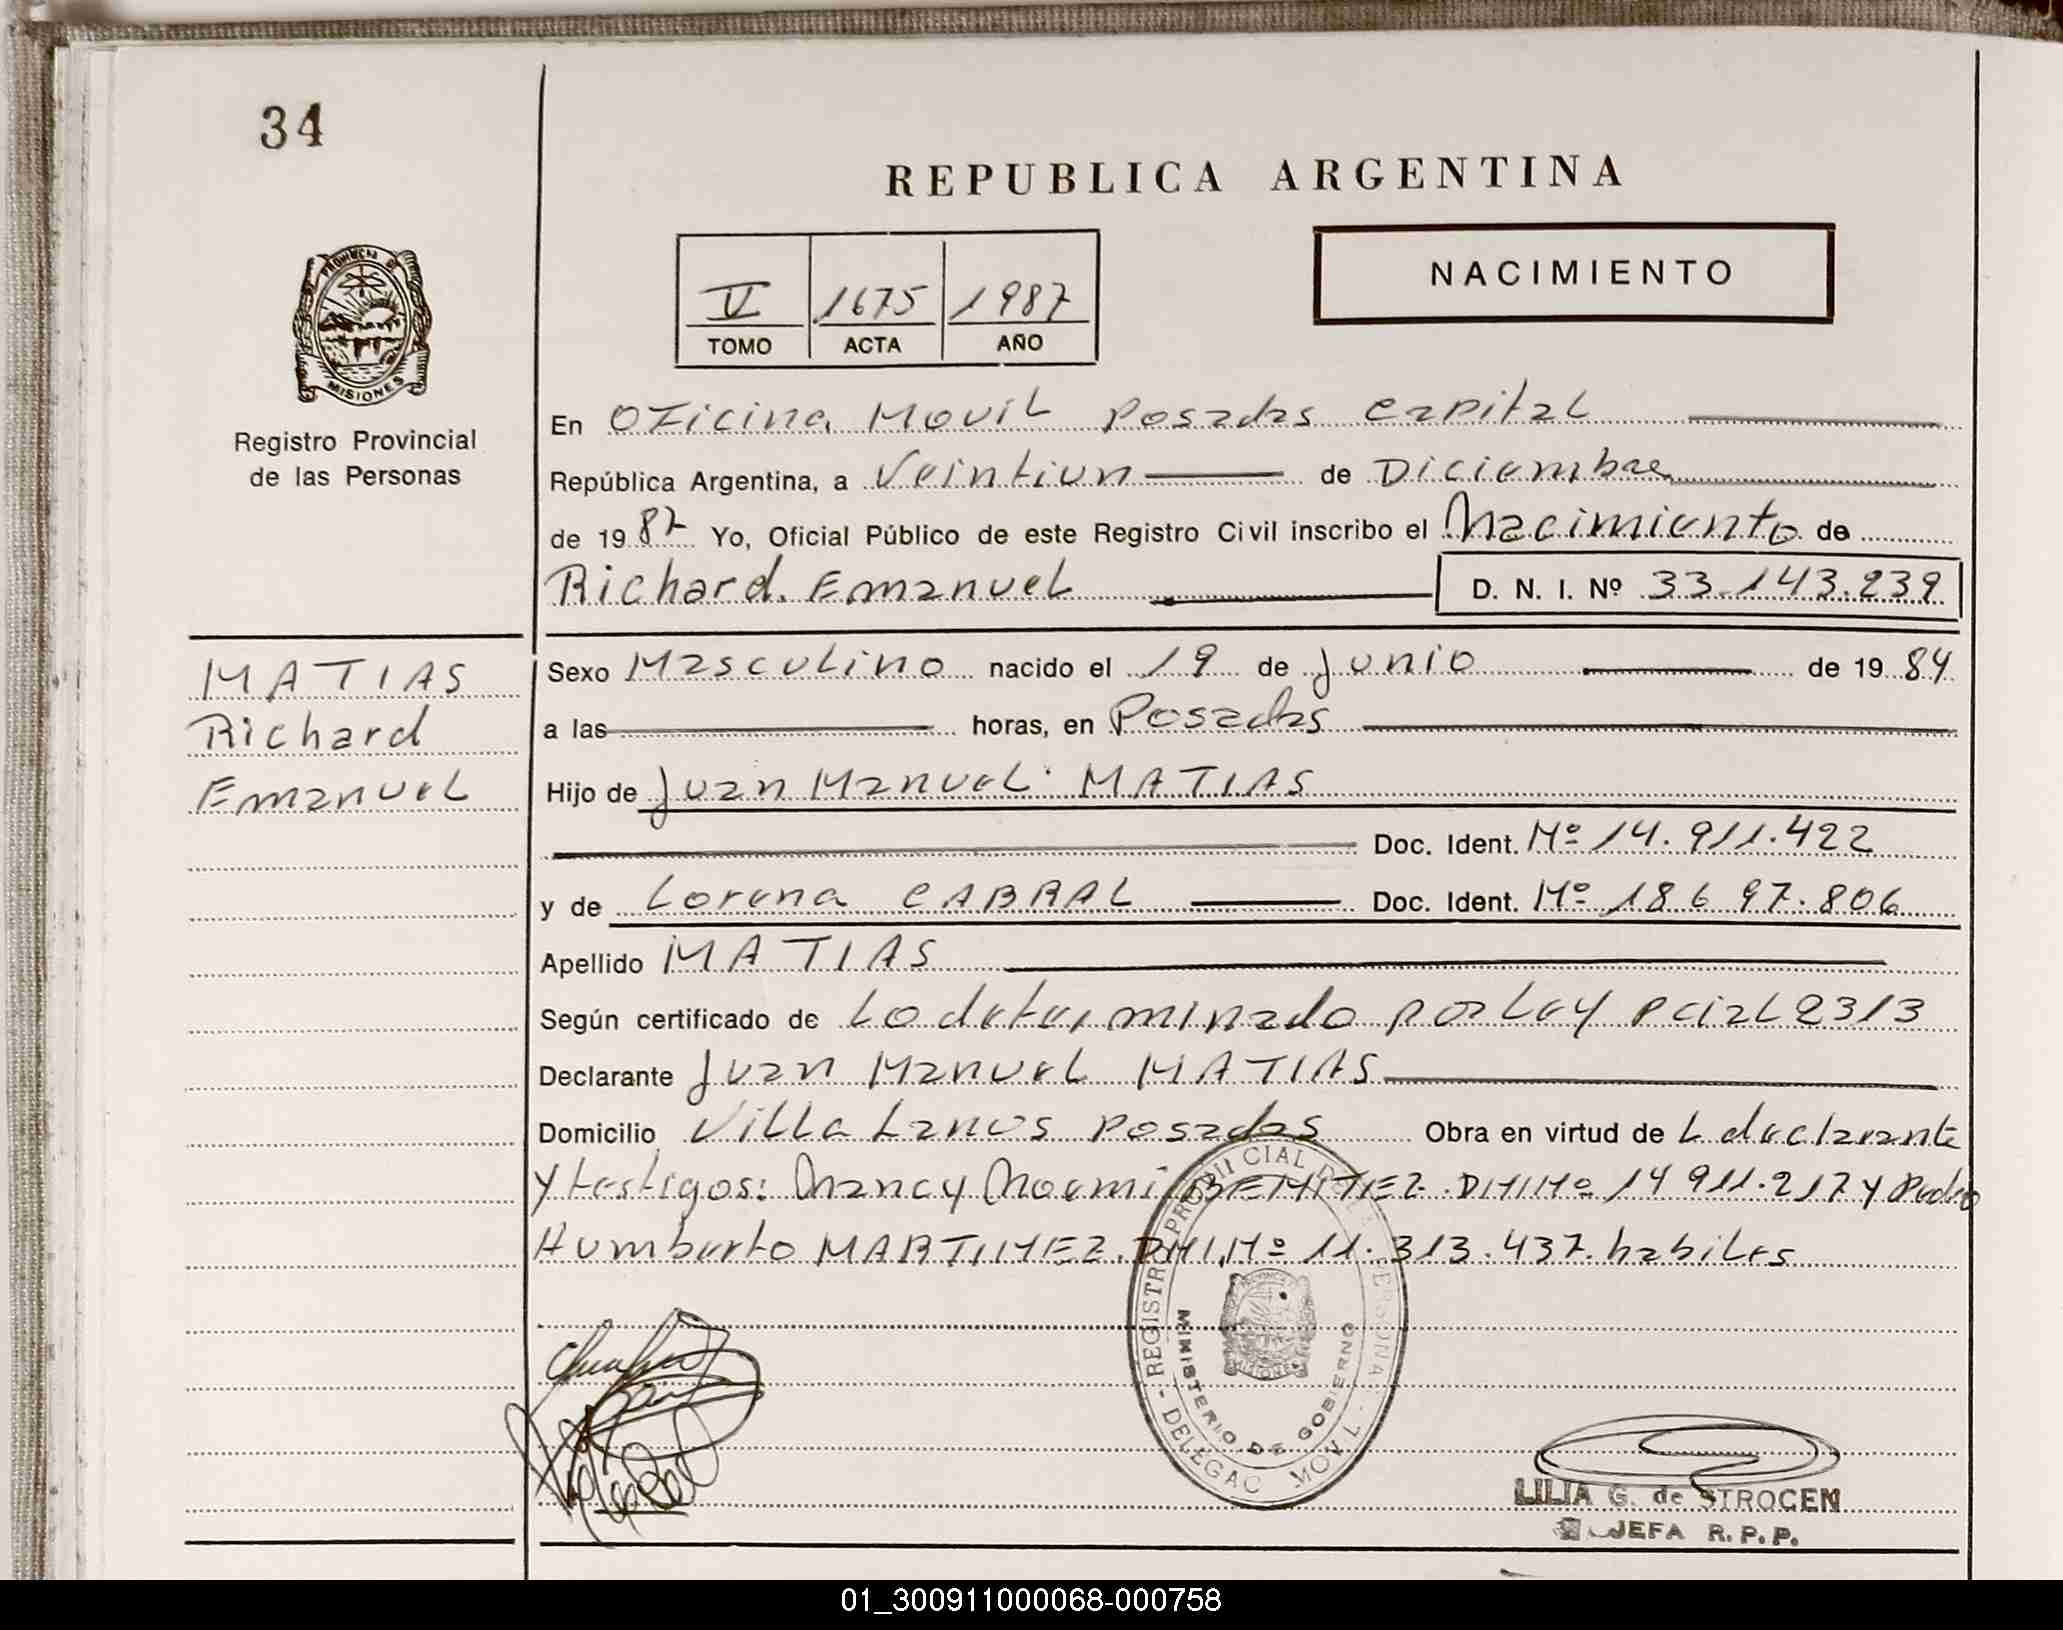 34
REPUBLICA ARGENTINA
PROVINCIA DE
MISIONES
Registro Provincial
de las Personas
V 1675 1987
TOMO ACTA AÑO
NACIMIENTO
En Oficina Movil Posadas Capital
República Argentina, a Veintiun de Diciembre
de 1987 Yo, Oficial Público de este Registro Civil inscribo el Nacimiento de
Richard Emanuel D. N. I. Nº 33.143.239
MATIAS
Richard
Emanuel
Sexo Masculino nacido el 19 de Junio de 1984
a las horas, en Posadas
Hijo de Juan Manuel MATIAS
Doc. Ident. Nº 14.911.422
y de Lorena CABRAL Doc. Ident. Nº 18 6 97.806
Apellido MATIAS
Según certificado de Lo determinado por Ley Pcial 2313
Declarante Juan Manuel MATIAS
Domicilio Villa Lanus Posadas Obra en virtud de L declarante
y testigos: Nancy Noemi BENITEZ DNI Nº 14 911.217 y Pedro
Humberto MARTINEZ DNI Nº 11.313.437. habiles
REGISTRO PROVINCIAL DE PERSONA
DELEGAC MOVIL
MINISTERIO DE GOBIERNO
LILIA G. de STROCEN
JEFA R.P.P.
01_300911000068-000758